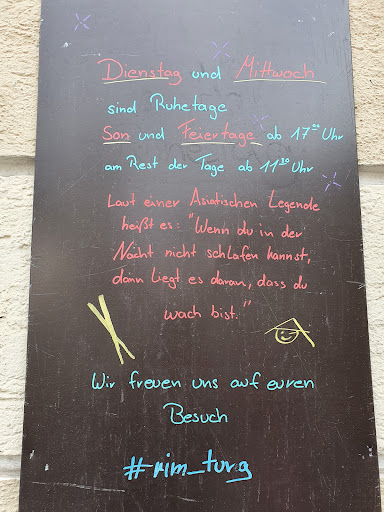 Dienstag und Mittwoch
sind Ruhetage
Son und Feiertage ab 17⁰⁰ Uhr
am Rest der Tage ab 11³⁰ Uhr
Laut einer Asiatischen Legende
heißt es: "Wenn du in der
Nacht nicht schlafen kannst,
dann liegt es daran, dass du
wach bist."
Wir freuen uns auf euren
Besuch
#rim_turg